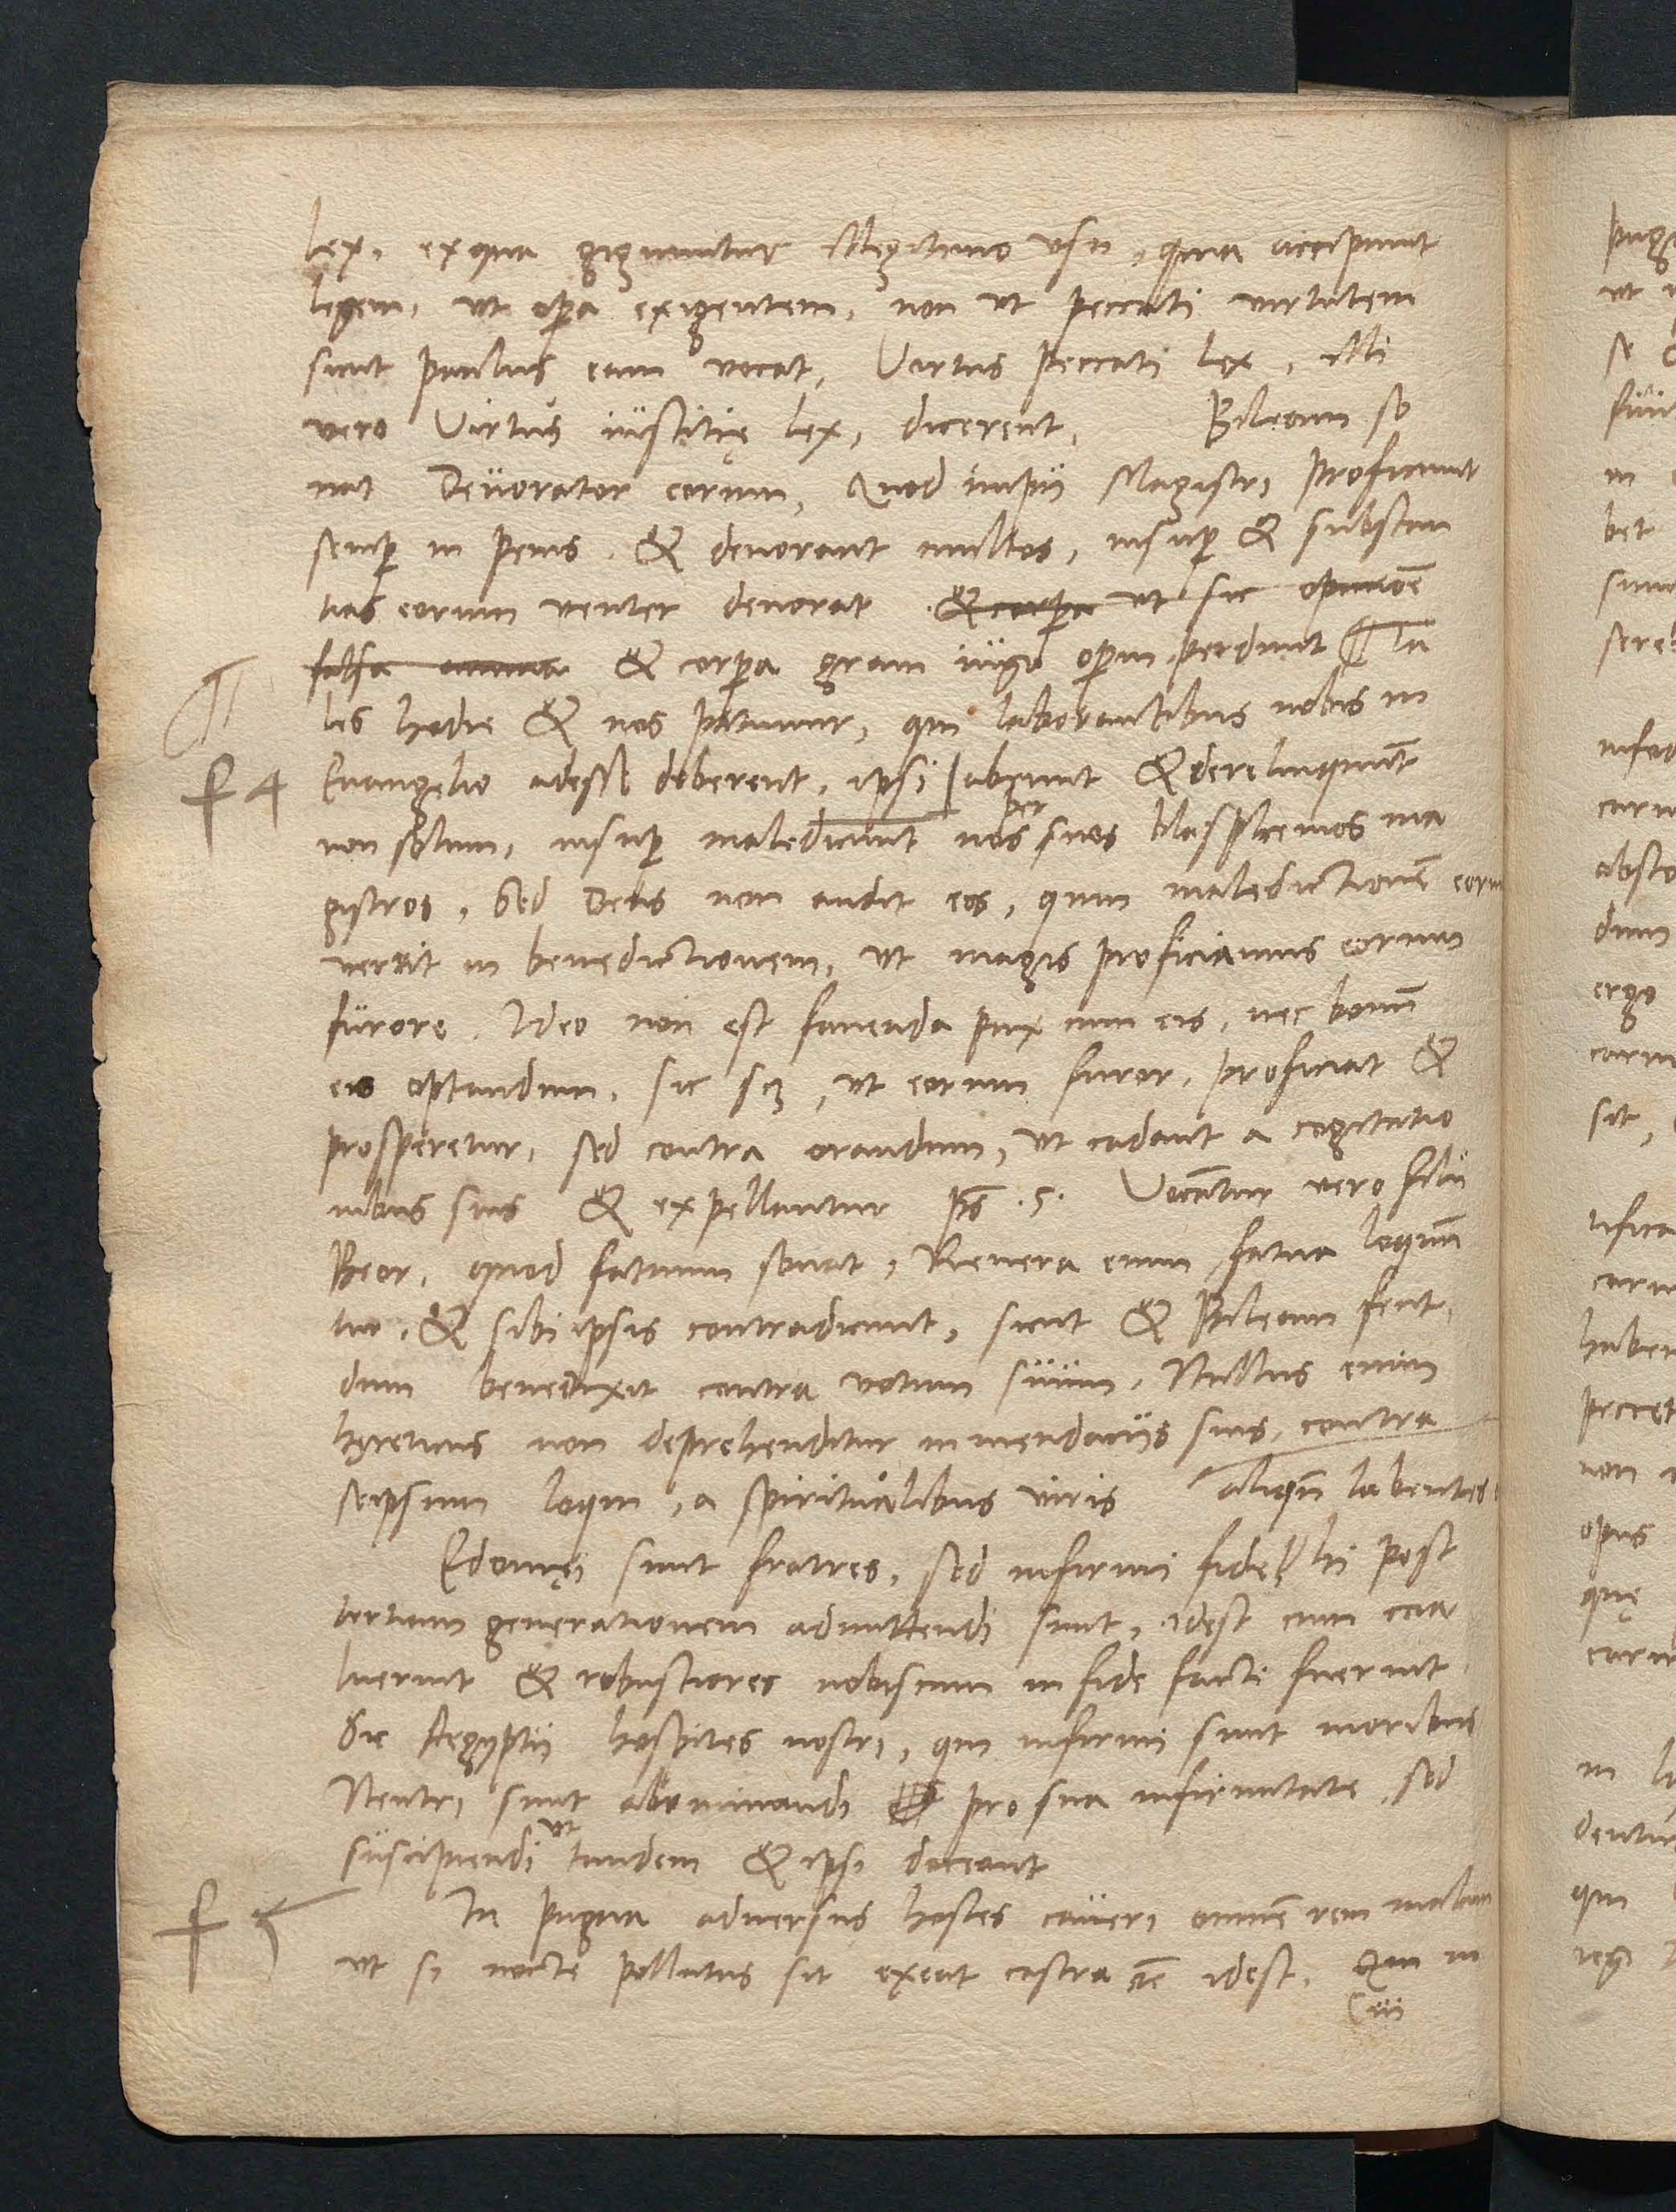 lex, ex qua gignuntur illegitimo vsu, quia accipiunt
legem, vt opera exigentem, non vt peccati virtutem
sicut paulus eam vocat, Virtus peccati lex, illi
vero Virtus iustitię lex, dicerent, Bileam so
nat Deuorator eorum, Quod impii Magistri proficiunt
semp in peius. & deuorant multos, insup & substan
tias eorum venter deuorat & corpa vt sic opinione
falsa & corpa graui iugo operum perdunt Ta
les hodie & nos patimur, qui laborantibus nobis in
f 4 Euangelio adesse deberent, ipsi abeunt & derelinquunt
non solum, insup maledicunt nos per suos blasphemos ma
gistros, Sed Deus non audit eos, quin maledictionē eorū
vertit in benedictionem, vt magis proficiamus eorum
furore. Ideo non est fauenda pax cum eis, nec bonū
eis optandum, sic scz, vt eorum furor, proficiat &
prosperetur, sed contra orandum, vt cadant a cogitatio
nibus suis & expellantur ps .5. Vocātur vero filii
Beor, quod fatuum sonat, Reuera enim fatua loquūn
tur, & sibiipsis contradicunt, sicut & Bileam fecit,
dum benedixit contra votum suum, Nullus enim
hęreticus non deprehenditur in mendaciis suis, contra
seipsum loqui, a spiritualibus viris aliquā labentes
Edomęi sunt fratres, sed infirmi fide, hi post
tertiam generationem admittendi sunt, idest cum coa
luerint & robustiores nobiscum in fide facti fuerint
Sic Aegyptii hospites nostri, qui infirmi sunt moribus
Neutri sunt abominandi pro sua infirmitate, sed
suscipiendi vt tandem & ipsi doceant
f 5 In pugna aduersus hostes caueri omnē rem malam
vt si nocte pollutus sit exeat castra idest, Qui in
C iii